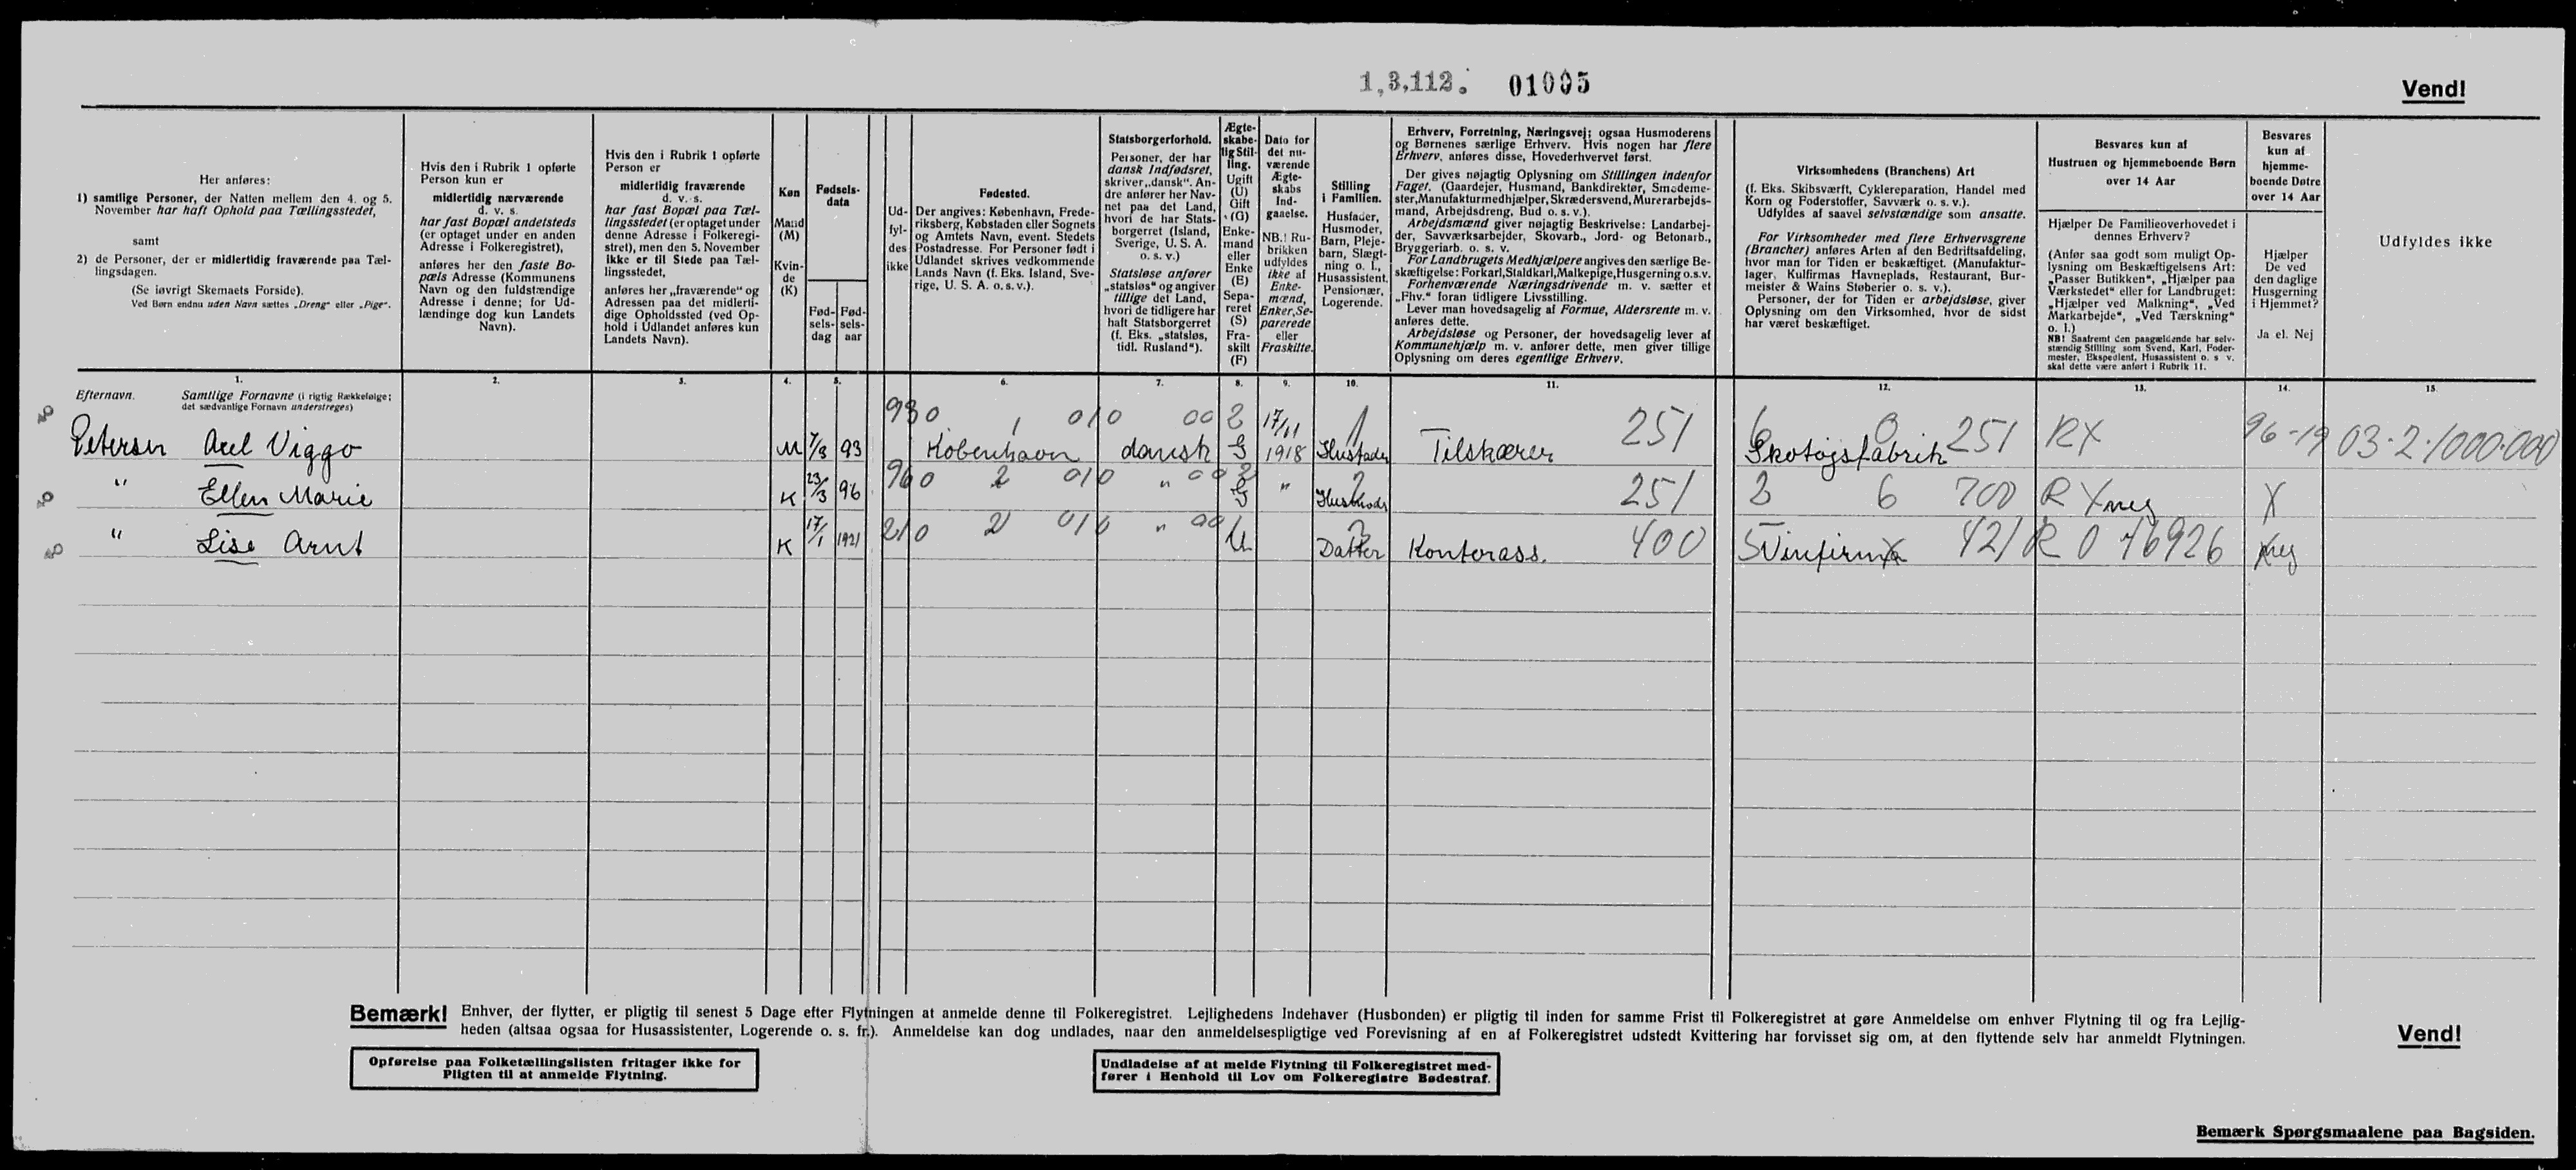 1,3,112. 01005
Vend!
Her anføres:
1) samtlige Personer, der Natten mellem den 4. og 5.
November har haft Ophold paa Tællingsstedet,
samt
2) de Personer, der er midlertidig fraværende paa Tæl-
lingsdagen.
(Se iøvrigt Skemaets Forside).
Ved Børn endnu uden Navn sættes „Dreng“ eller „Pige“.
Hvis den i Rubrik 1 opførte
Person kun er
midlertidig nærværende
d. v. s.
har fast Bopæl andetsteds
(er optaget under en anden
Adresse i Folkeregistret),
anføres her den faste Bo-
pæls Adresse (Kommunens
Navn og den fuldstændige
Adresse i denne; for Ud-
lændinge dog kun Landets
Navn).
Hvis den i Rubrik 1 opførte
Person er
midlertidig fraværende
d. v. s.
har fast Bopæl paa Tæl-
lingsstedet (er optaget under
denne Adresse i Folkeregi-
stret), men den 5. November
ikke er til Stede paa Tæl-
lingsstedet,
anføres her „fraværende“ og
Adressen paa det midlerti-
dige Opholdssted (ved Op-
hold i Udlandet anføres kun
Landets Navn).
Køn
Mand
(M)
Kvin-
de
(K)
Fødsels-
data
Fød-
sels-
dag
Fød-
sels-
aar
Ud-
fyl-
des
ikke
Fødested.
Der angives: København, Frede-
riksberg, Købstaden eller Sognets
og Amtets Navn, event. Stedets
Postadresse. For Personer født i
Udlandet skrives vedkommende
Lands Navn (f. Eks. Island, Sve-
rige, U. S. A. o. s. v.).
Statsborgerforhold.
Personer, der har
dansk Indfødsret,
skriver „dansk“. An-
dre anfører her Nav-
net paa det Land,
hvori de har Stats-
borgerret (Island,
Sverige, U. S. A.
o. s. v.)
Statsløse anfører
„statsløs“ og angiver
tillige det Land,
hvori de tidligere har
haft Statsborgerret
(f. Eks. „statsløs,
tidl. Rusland“).
Ægte-
skabe-
lig Stil-
ling.
Ugift
(U)
Gift
(G)
Enke-
mand
eller
Enke
(E)
Sepa-
reret
(S)
Fra-
skilt
(F)
Dato for
det nu-
værende
Ægte-
skabs
Ind-
gaaelse.
NB.! Ru-
brikken
udfyldes
ikke af
Enke-
mænd,
Enker, Se-
parerede
eller
Fraskilte.
Stilling
i Familien.
Husfader,
Husmoder,
Barn, Pleje-
barn, Slægt-
ning o. l.,
Husassistent,
Pensionær,
Logerende.
Erhverv, Forretning, Næringsvej; ogsaa Husmoderens
og Børnenes særlige Erhverv. Hvis nogen har flere
Erhverv, anføres disse, Hovederhvervet først.
Der gives nøjagtig Oplysning om Stillingen indenfor
Faget. (Gaardejer, Husmand, Bankdirektør, Smedeme-
ster, Manufakturmedhjælper, Skrædersvend, Murerarbejds-
mand, Arbejdsdreng, Bud o. s. v.).
Arbejdsmænd giver nøjagtig Beskrivelse: Landarbej-
der, Savværksarbejder, Skovarb., Jord- og Betonarb.,
Bryggeriarb. o. s. v.
For Landbrugets Medhjælpere angives den særlige Be-
skæftigelse: Forkarl, Staldkarl, Malkepige, Husgerning o.s.v.
Forhenværende Næringsdrivende m. v. sætter et
„Fhv.“ foran tidligere Livsstilling.
Lever man hovedsagelig af Formue, Aldersrente m. v.
anføres dette.
Arbejdsløse og Personer, der hovedsagelig lever af
Kommunehjælp m. v. anfører dette, men giver tillige
Oplysning om deres egentlige Erhverv.
Virksomhedens (Branchens) Art
(f. Eks. Skibsværft, Cyklereparation, Handel med
Korn og Foderstoffer, Savværk o. s. v.).
Udfyldes af saavel selvstændige som ansatte.
For Virksomheder med flere Erhvervsgrene
(Brancher) anføres Arten af den Bedriftsafdeling,
hvor man for Tiden er beskæftiget. (Manufaktur-
lager, Kulfirmas Havneplads, Restaurant, Bur-
meister & Wains Støberier o. s. v.).
Personer, der for Tiden er arbejdsløse, giver
Oplysning om den Virksomhed, hvor de sidst
har været beskæftiget.
Besvares kun af
Hustruen og hjemmeboende Børn
over 14 Aar
Hjælper De Familieoverhovedet i
dennes Erhverv?
(Anfør saa godt som muligt Op-
lysning om Beskæftigelsens Art:
„Passer Butikken“, „Hjælper paa
Værkstedet“ eller for Landbruget:
„Hjælper ved Malkning“, „Ved
Markarbejde“, „Ved Tærskning“
o. l.)
NB! Saafremt den paagældende har selv-
stændig Stilling som Svend, Karl, Foder-
mester, Ekspedient, Husassistent o. s. v.
skal dette være anført i Rubrik 11.
Besvares
kun af
hjemme-
boende Døtre
over 14 Aar
Hjælper
De ved
den daglige
Husgerning
i Hjemmet?
Ja el. Nej
Udfyldes ikke
1. 2. 3. 4. 5. 6. 7. 8. 9. 10. 11. 12. 13. 14. 15
Efternavn. Samtlige Fornavne (i rigtig Rækkefølge;
det sædvanlige Fornavn understreges)
930 1 010 00 2 17/11 1 251 6 0 251 RX 96-19 03-2-1000-000
Petersen Axel Viggo M 7/8 93 København dansk G 1918 Husfader Tilskærer Skotøjsfabrik
960 2 010 00 2 2
" Ellen Marie K 23/3 96 " G " Husmoder 251 2 6 700 R X nej X
210 2 010 00
" Lise Arnt K 17/1 1921 " U Datter Kontorass. 400 5 Vinfirma 421 R 0 46926 nej
Bemærk! Enhver, der flytter, er pligtig til senest 5 Dage efter Flytningen at anmelde denne til Folkeregistret. Lejlighedens Indehaver (Husbonden) er pligtig til inden for samme Frist til Folkeregistret at gøre Anmeldelse om enhver Flytning til og fra Lejlig-
heden (altsaa ogsaa for Husassistenter, Logerende o. s. fr.). Anmeldelse kan dog undlades, naar den anmeldelsespligtige ved Forevisning af en af Folkeregistret udstedt Kvittering har forvisset sig om, at den flyttende selv har anmeldt Flytningen.
Vend!
Opførelse paa Folketællingslisten fritager ikke for
Pligten til at anmelde Flytning.
Undladelse af at melde Flytning til Folkeregistret med-
fører i Henhold til Lov om Folkeregistre Bødestraf.
Bemærk Spørgsmaalene paa Bagsiden.